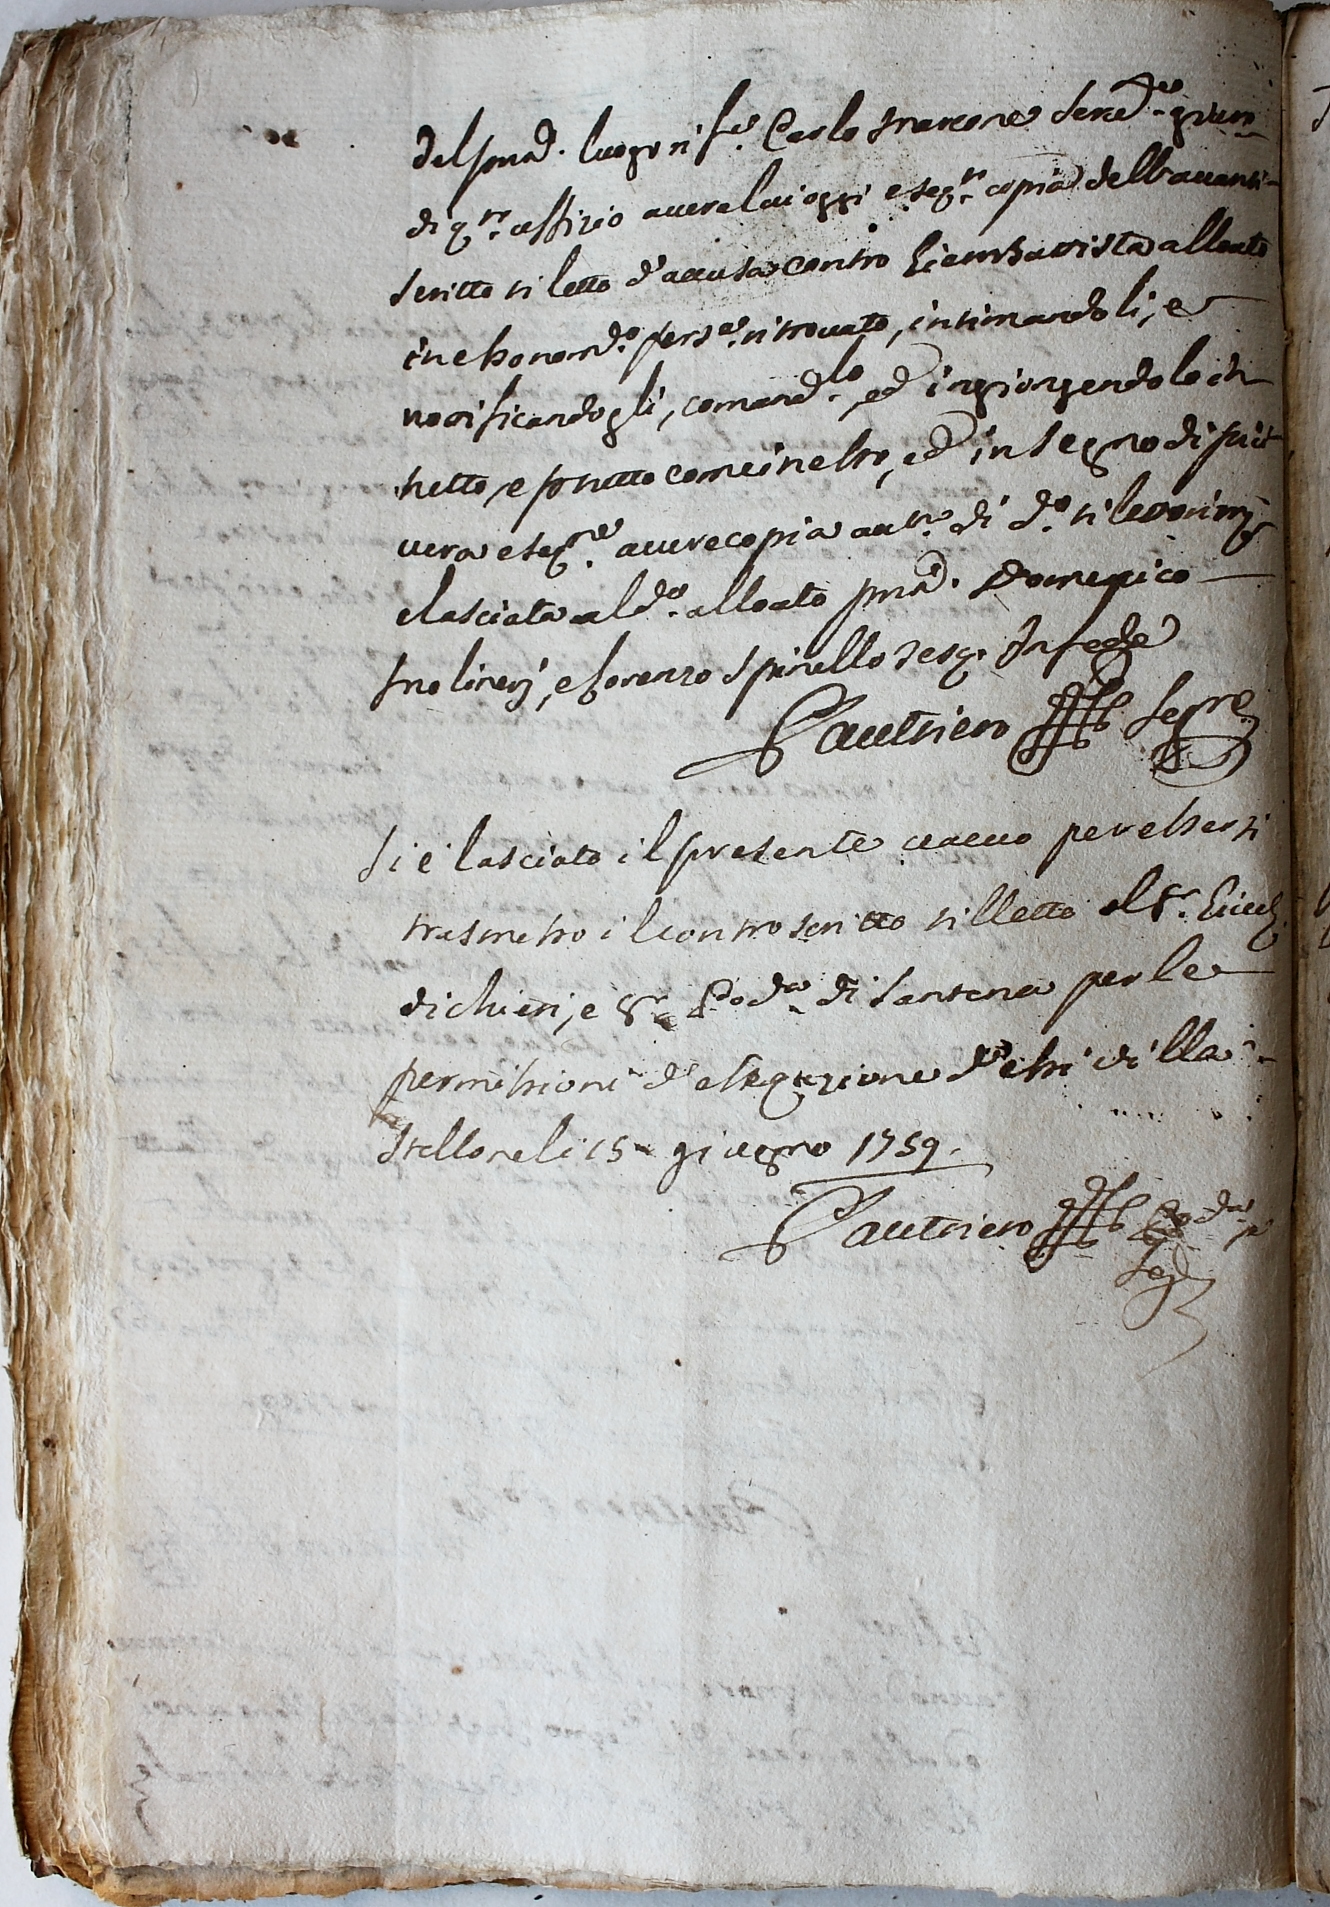 del pmd. luogo rifе. Carlo Marcone serv.e giur.
di q.to uffizio aver lui oggi eseg.to copia dell'avanti
scritto biletto d'accusa contro Giambattista allocato
in esso nom.do pers.e ritrovato, intimandoli, e
notificandogli, comand.lo, ed ingiongendolo in
tutto, e p tutto come in esso, ed in segno di più
vera eseg.ne avere copia aut.ca di d.o biletto rimess
e lasciata al d.o allocato pnti. Domenico
Molineri, e Lorenzo Spinello test. In fede
Gautniero Segre
Si è lasciato il presente vacuo per essersi
trasmesso il controscritto billetto al Sr. Giud.
di Chieri, e Sr. Pod.a di Santena per le
permissioni d'essecuzione d'essi Villa
Stellone li 15 giugno 1759.
Gautniero Pod.a
Seg